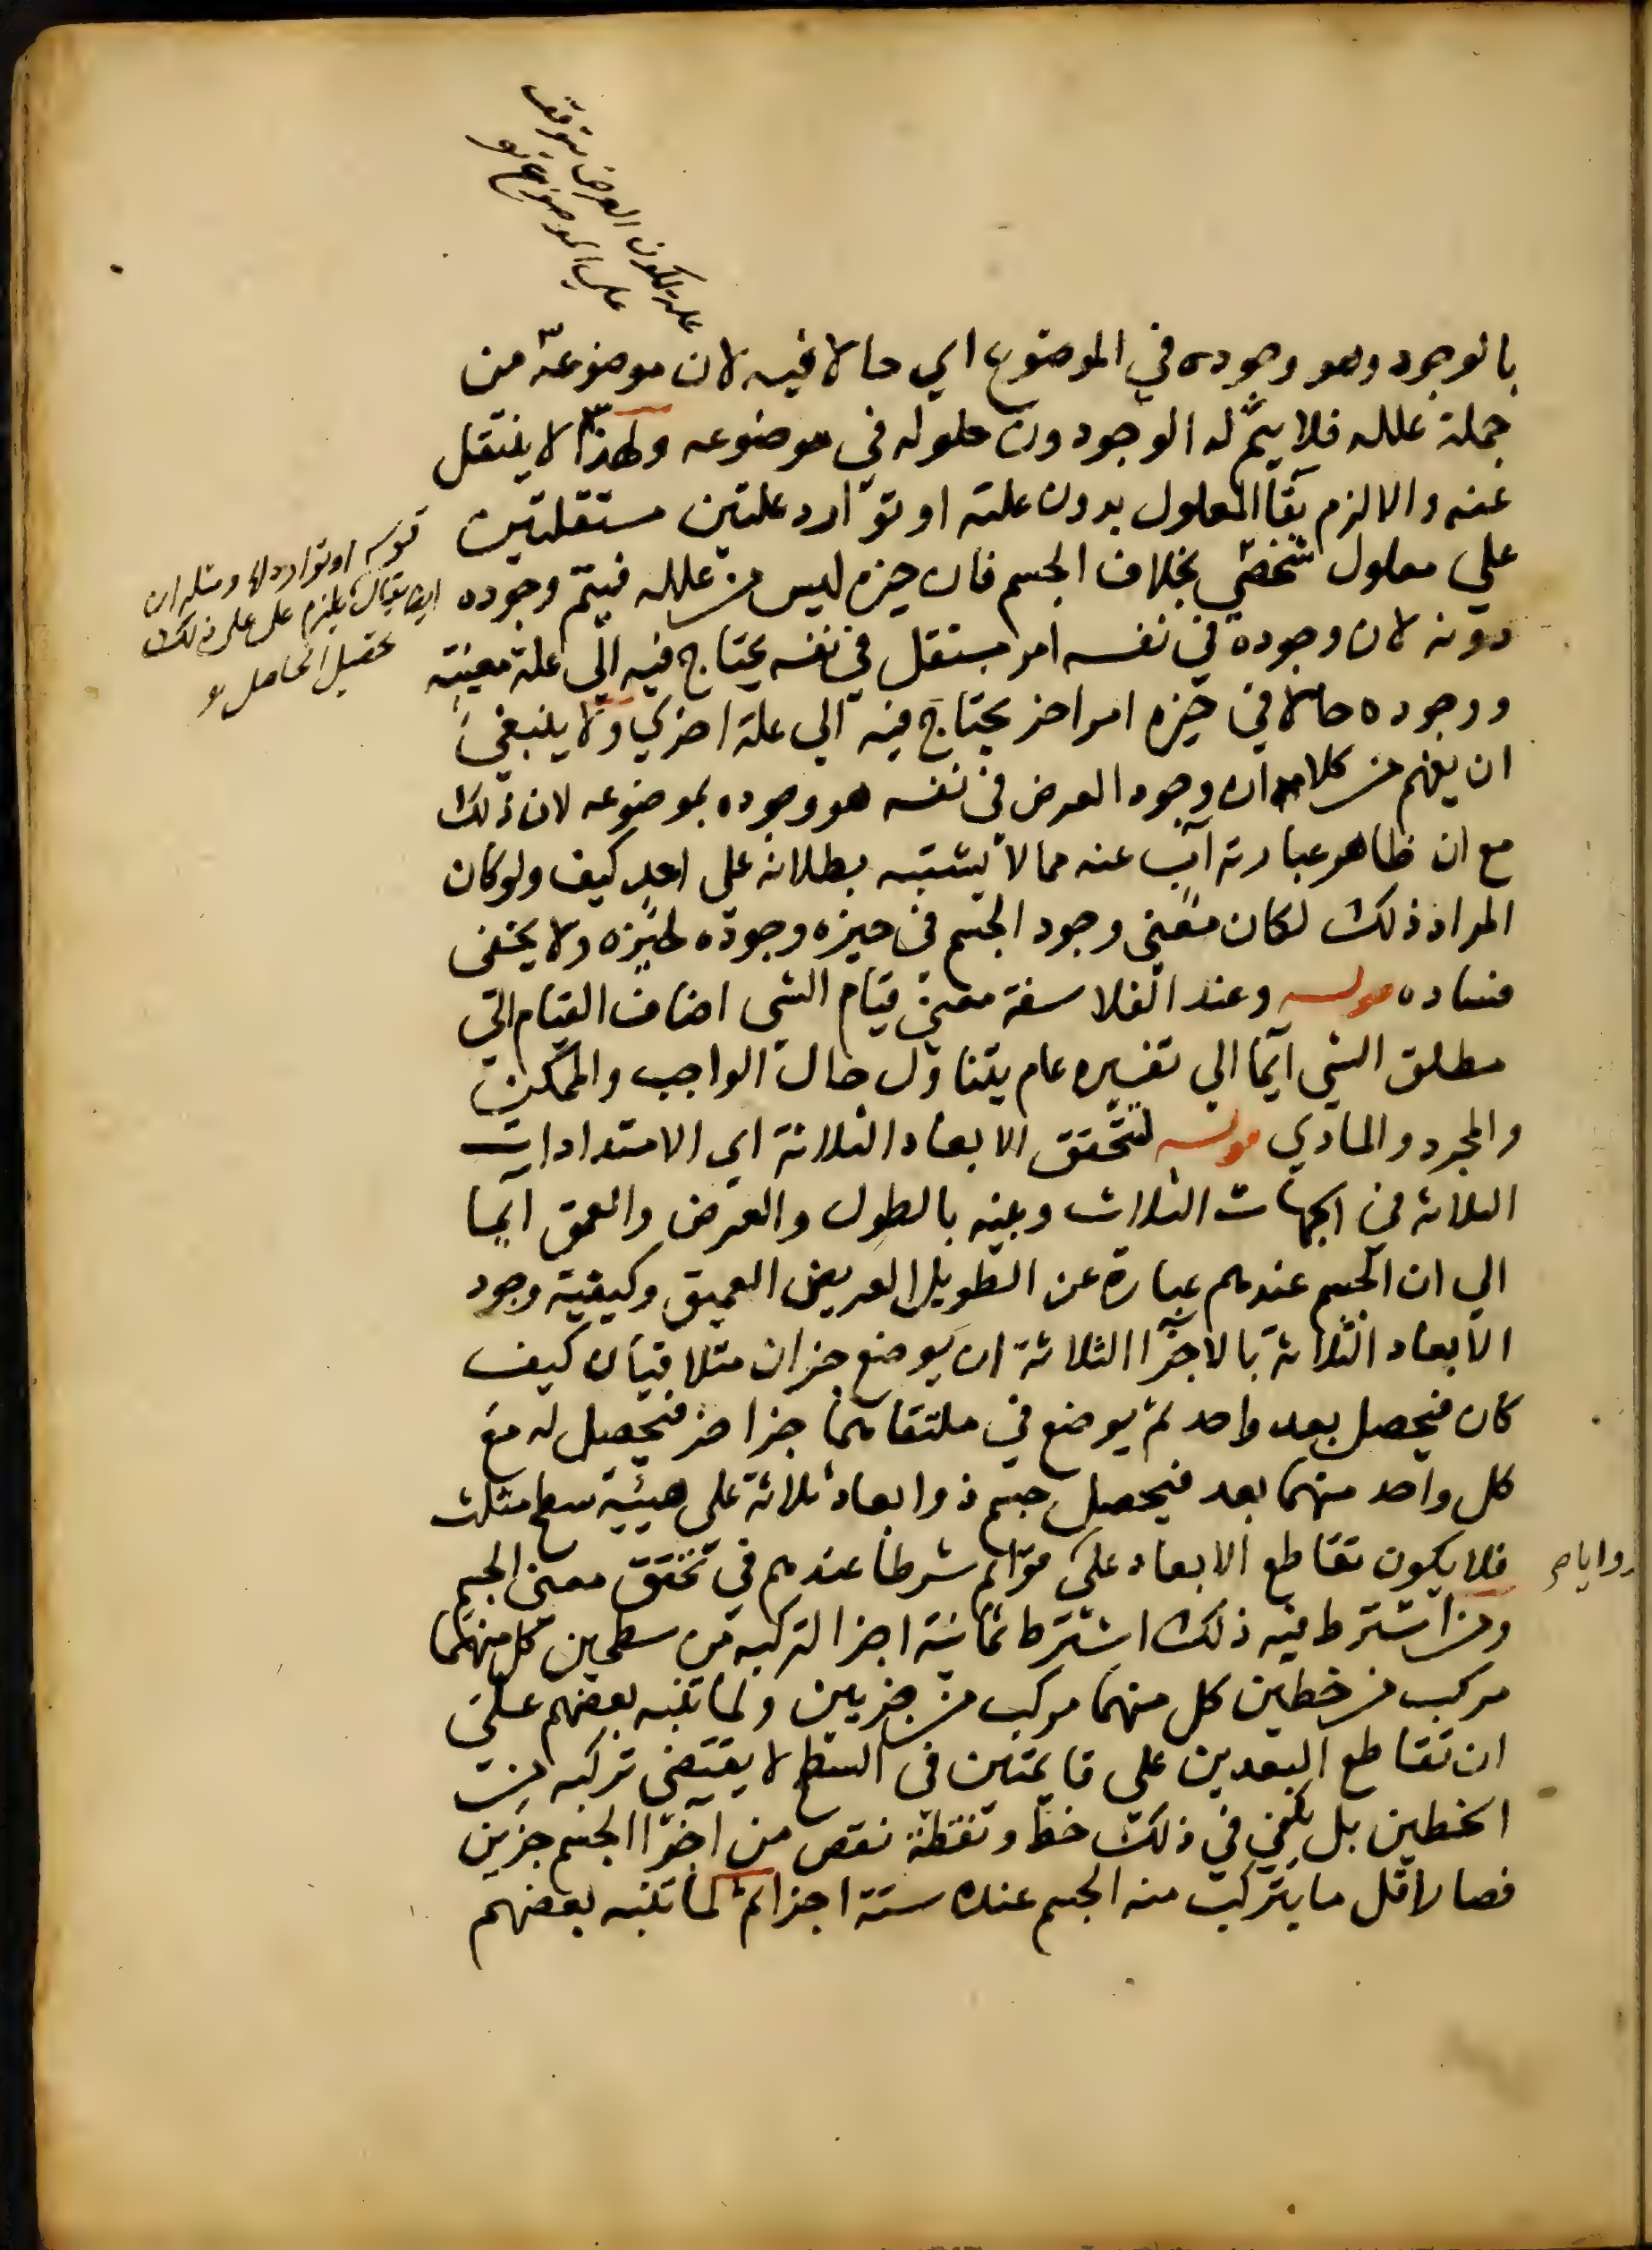 علة لكون العرض يتوقف
على الموضوع
بالوجود وهو وجوده في الموضوع اي حالا فيه لان موضوعه من
جملة علله فلا يتم له الوجود دون حلوله في موضوعه ولهذا لا ينتقل
عنه والا لزم بقا المعلول بدون علته او توارد علتين مستقلتين
علي معلول شخصي بخلاف الجسم فان حيزه ليس من علله فيتم وجوده
دونه لان وجوده في نفسه امر مستقل في نفسه يحتاج فيه الي علة معينة
ووجوده حالا في حيزه امر اخر يحتاج فيه الي علة اخري ولا ينبغي
ان يفهم من كلامه ان وجود العرض في نفسه هو وجوده بموضوعه لان ذلك
مع ان ظاهر عبارته آب عنه مما لا يشتبه بطلانه علي احد كيف ولو كان
المراد ذلك لكان معني وجود الجسم في حيزه وجوده لحيزه ولا يخفى
فساده قوله وعند الفلاسفة معني قيام الشي اضاف القيام الي
مطلق الشي ايما الي تفسيره عام يتناول حال الواجب والممكن
والمجرد والمادي قوله لتحقق الابعاد الثلاثة اي الامتدادات
الثلاثة في الجهات الثلاث وعينه بالطول والعرض والعمق ايما
الي ان الجسم عندهم عبارة عن الطويل العريض العميق وكيفية وجود
الابعاد الثلاثة بالاجزا الثلاثة ان يوضع جزان متلاقيان كيف
كان فيحصل بعد واحد ثم يوضع في ملتقاهما جزا خر فيحصل له مع
كل واحد منهما بعد فيحصل جسم ذو ابعاد ثلاثة على هيئية سطح مثلث
فلا يكون تقاطع الابعاد علي قوائم شرطا عندهم في تحقق معني الجسم
ومن اشترط فيه ذلك اشترط ثمانية اجزا لتركبه من سطحين كل منهما
مركب من خطين كل منهما مركب من جزيين ولما تنبه بعضهم علي
ان تقاطع البعدين على قايمتين في السطح لا يقتضي تركبه من
الخطين بل يكفي في ذلك خط ونقطة نقص من اجزا الجسم جزين
فصار اقل ما يتركب منه الجسم عنده ستة اجزا ثم لما تنبه بعضهم
قوله او توارد الخ ومثله ان
ايضا يقال يلزم على ذلك
تحصيل الحاصل
زوايا